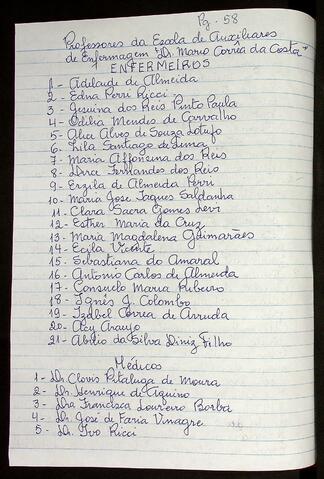 Pg. 58
Professores da Escola de Auxiliares
de Enfermagem "Dr. Mario Corrêa da Costa"
ENFERMEIROS
1 - Adelaide de Almeida
2 - Edna Perri Ricci
3 - Jesuina dos Reis Pinto Paula
4 - Odilia Mendes de Carvalho
5 - Alice Alves de Souza Lotufo
6 - Lila Santiago de Lima
7 - Maria Affonsina dos Reis
8 - Dora Fernandes dos Reis
9 - Erzila de Almeida Perri
10 - Maria Jose Jaques Saldanha
11 - Clara Sacra Gomes Levi
12 - Esther Maria da Cruz
13 - Maria Magdalena Guimarães
14 - Vicente
15 - Sebastiana do Amaral
16 - Antonio Carlos de Almeida
17 - Consuelo Maria Ribeiro
18 - Ignês G. Colombo
19 - Izabel Correa de Arruda
20 - Alcy Araujo
21 - Abilio da Silva Diniz Filho
Médicos
1 - Dr. Clovis Pitaluga de Moura
2 - Dr. Henrique de Aquino
3 - Dra Francisca Loureiro Borba
4 - Dr. José de Faria Vinagre
5 - Dr. Ivo Ricci